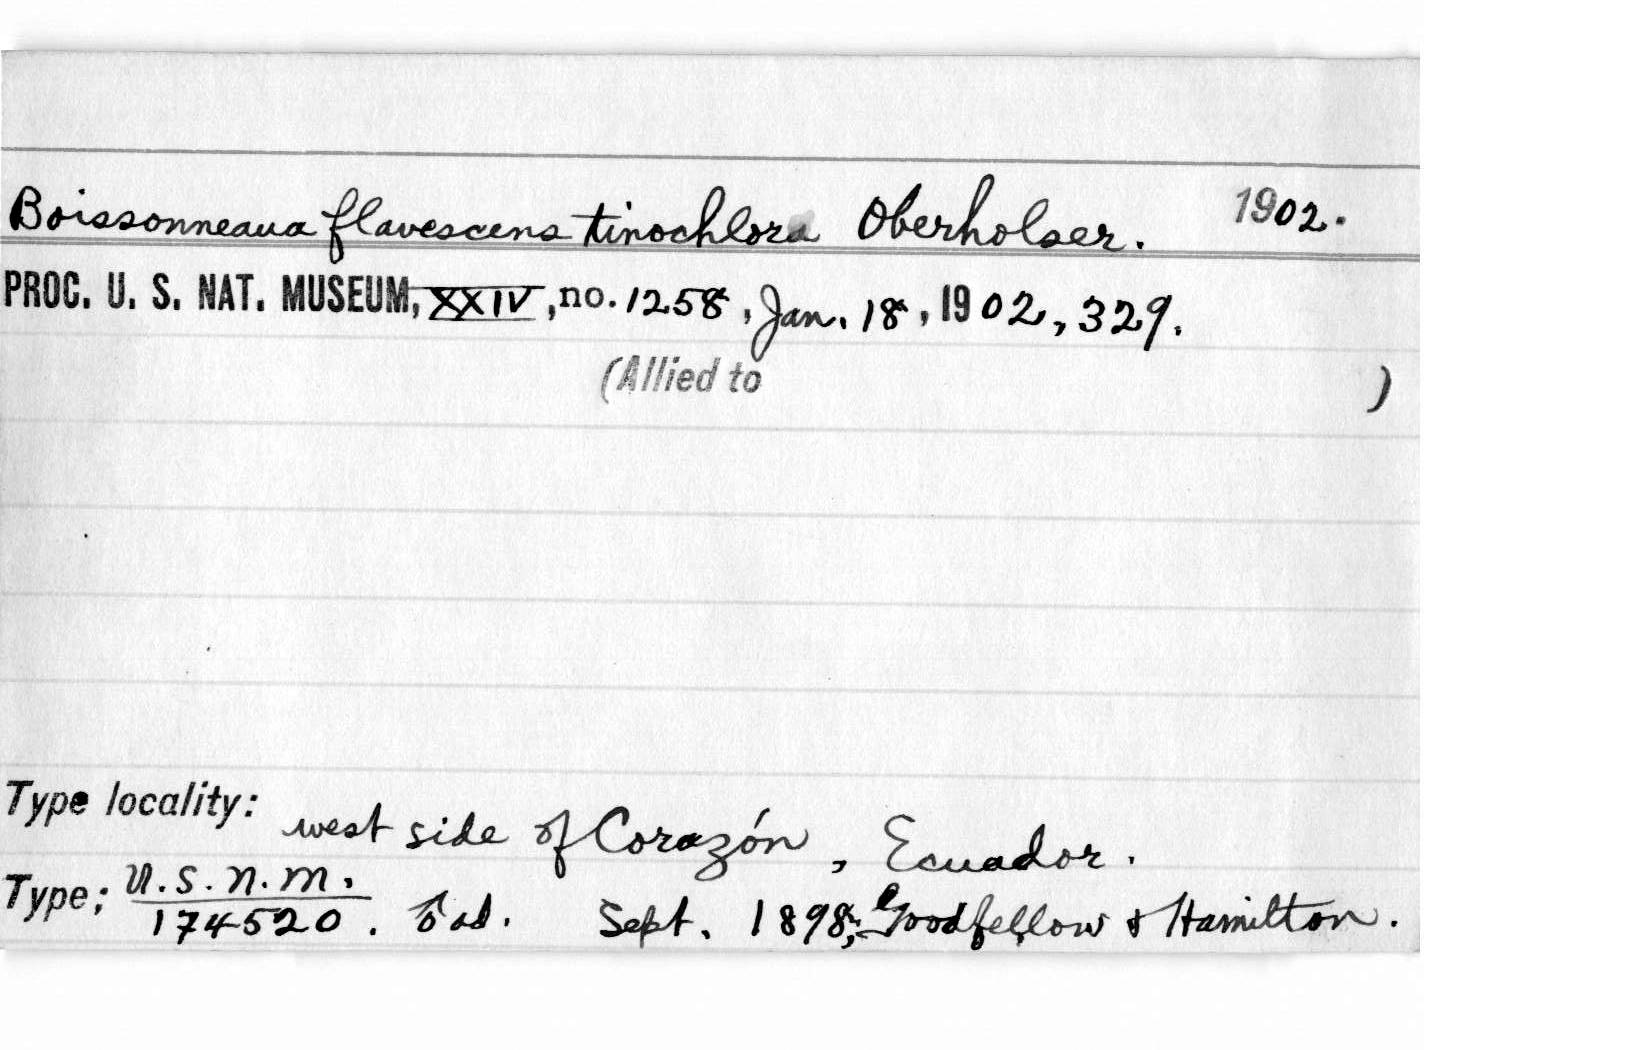 Boissonneaua flavescens tinochlora Oberholser. 1902.
PROC. U. S. NAT. MUSEUM, XXIV, no. 1258, Jan. 18, 1902, 329.
(Allied to )
Type locality: west side of Corazón, Ecuador.
Type; U.S.N.M. 174520. ♂ ad. Sept. 1898; Goodfellow & Hamilton.